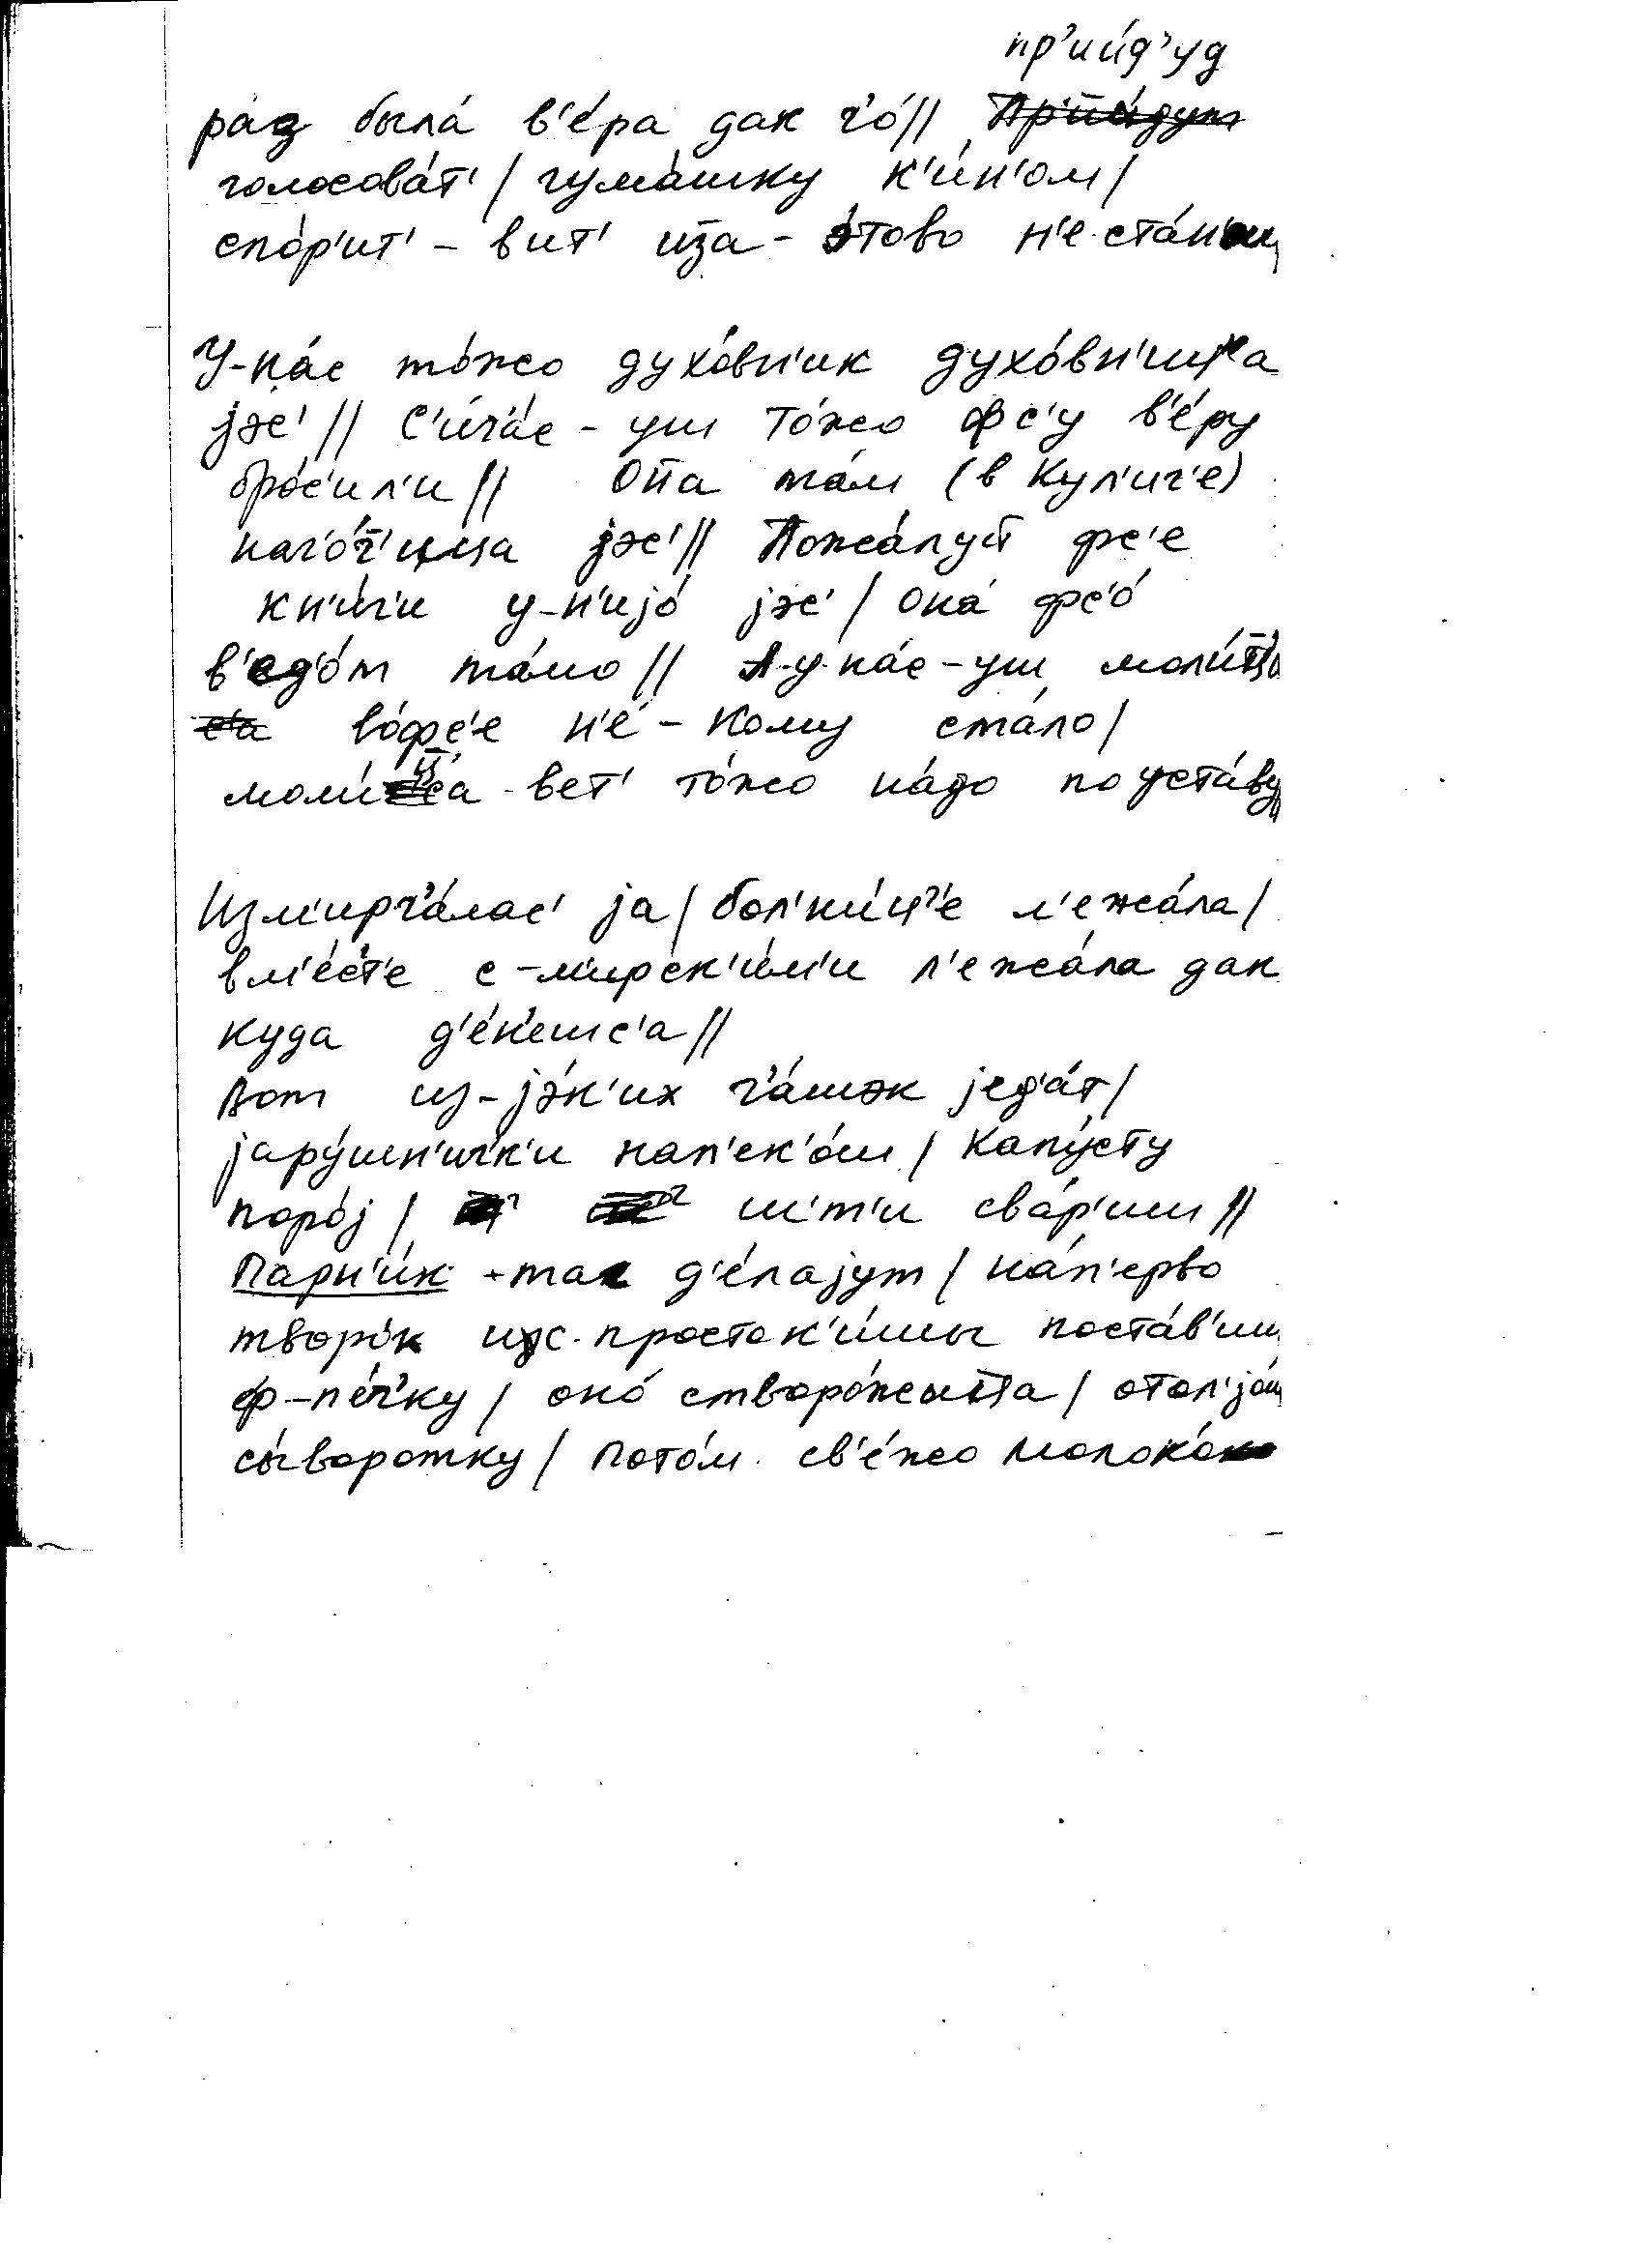 пр'ий́д'уд
раз была́ в'е́ра дак ч'о́//
голосова́т' / гума́шку к'и́н'ом /
спо́р'ит' - вит' иза - э́тово н'е ста́н'ош
У-на́с то́жо духо́вн'ик духо́вн'ица
јэс' // С'ич'а́с - уш то́жо фс'у в'е́ру
бро́с'ил'и // Она там (в Кул'иг'е)
јэс' // Пожа́луй фс'е
кн'и́г'и у-н'ијо́ јэс' / она́ фс'о́
в'ед'о́т та́мо // А-у-на́с-уш моли́ц:а
во́фс'е н'е́ - кому ста́ло /
моли́ц:а вет' то́жо на́до по уста́ву
Изм'ирч'а́лас' ја / бол'ни́ц'е л'ежа́ла /
вм'е́с'т'е с-мирск'и́м'и л'ежа́ла дак
куда д'е́н'ешс'а //
Вот из-јэ́к'их ч'а́шэк јед'а́т /
јару́шн'ич'к'и нап'ек'о́ш / капу́сту
поро́ј / ш'т'и сва́р'иш //
Парн'и́к - так д'е́лајут / на́п'ерво
творо́к ис-просток'и́шы поста́в'иш
ф-пе́ч'ку / оно́ створо́жыц:а / отол'јо́ш
сы́воротку / пото́м св'е́жо молоко́